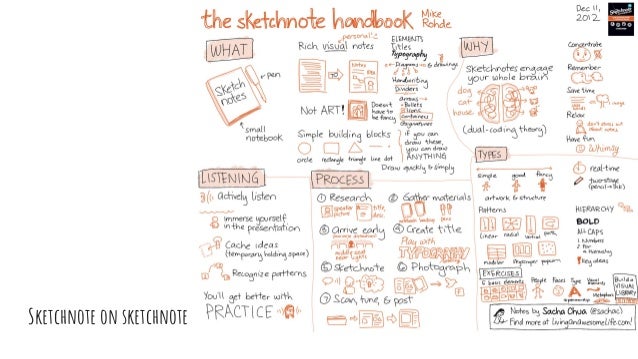 the sketchnote handbook
Mike Rohde
Dec 11, 2012
WHAT
Rich visual notes
personal
ELEMENTS
Titles
Typography
Diagrams & drawings
Handwriting
Dividers
arrows
Bullets
Icons
containers
signatures
Sketch notes
pen
small notebook
Notes
Not ART!
Doesn't have to be fancy
Simple building blocks
circle rectangle triangle line dot
if you can draw these, you can draw ANYTHING
Draw quickly & simply
WHY
Sketchnotes engage your whole brain
dog
cat
house
(dual-coding theory)
Concentrate
Remember
Save time
Relax
don't stress out about notes
Have fun
whimsy
LISTENING
actively listen
Immerse yourself in the presentation
Cache ideas
(temporary holding space)
Recognize patterns
You'll get better with
PRACTICE
PROCESS
1 Research
speaker
picture
title, desc.
2 Gather materials
pens
3 Arrive early
middle seat near lights
4 Create title
Play with
TYPOGRAPHY
5 Sketchnote
6 Photograph
7 Scan, tune, & post
TYPES
simple good fancy
artwork & structure
real-time
two-stage
(pencil→ink)
Patterns
linear radial vertical path
modular skyscraper popcorn
HIERARCHY
BOLD
ALL CAPS
1. Numbers
Key ideas
EXERCISES
5 basic elements People Faces Type Visual elements
Metaphors
Build a VISUAL LIBRARY
Notes by Sacha Chua (@sachac)
Find more at LivingAnAwesomeLife.com!
Sketchnote on sketchnote